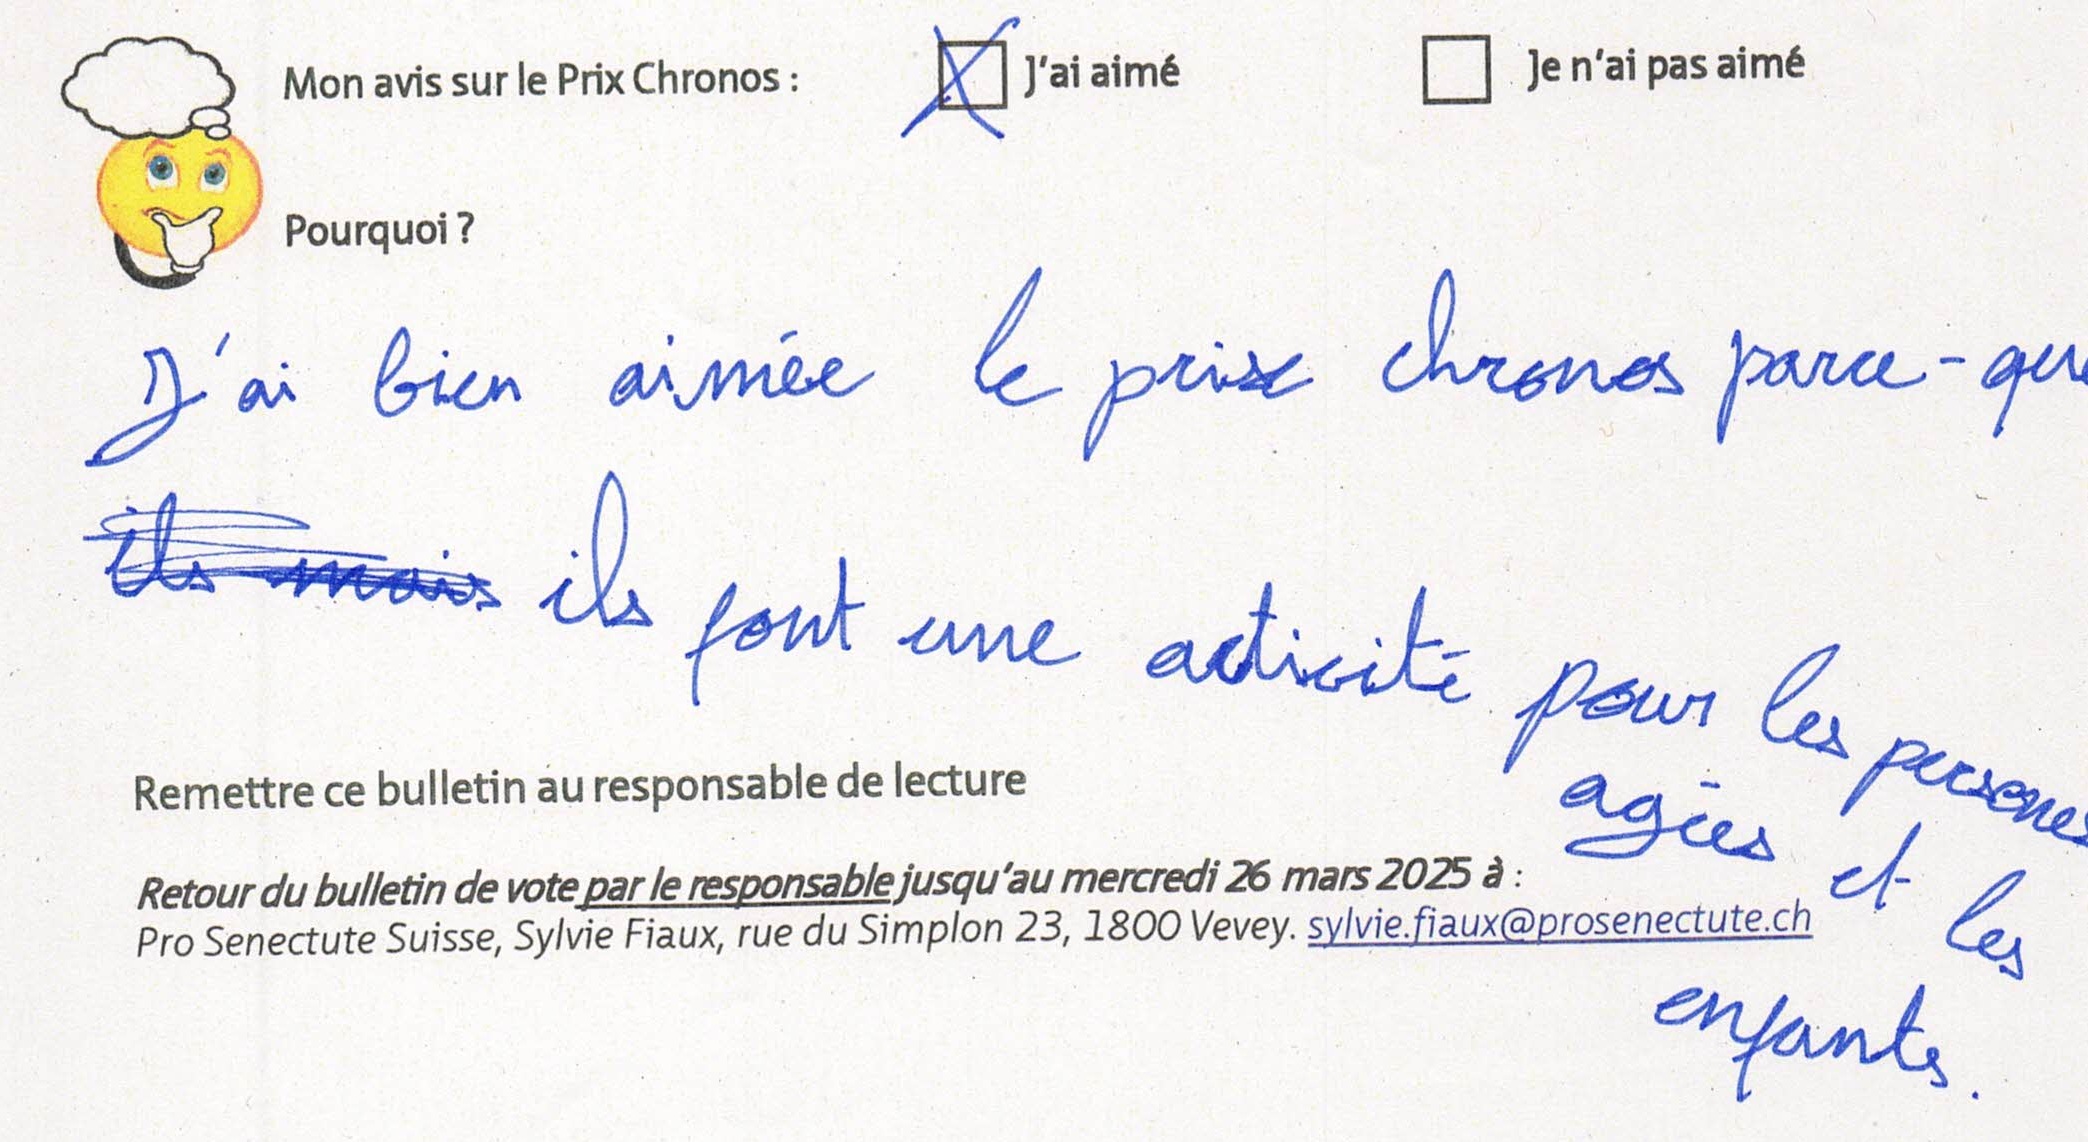 Mon avis sur le Prix Chronos : J'ai aimé Je n'ai pas aimé
Pourquoi ?
J'ai bien aimée le prix chronos parce-que
ils mais ils font une activité pour les persones
agées et les
enfants.
Remettre ce bulletin au responsable de lecture
Retour du bulletin de vote par le responsable jusqu'au mercredi 26 mars 2025 à :
Pro Senectute Suisse, Sylvie Fiaux, rue du Simplon 23, 1800 Vevey. sylvie.fiaux@prosenectute.ch